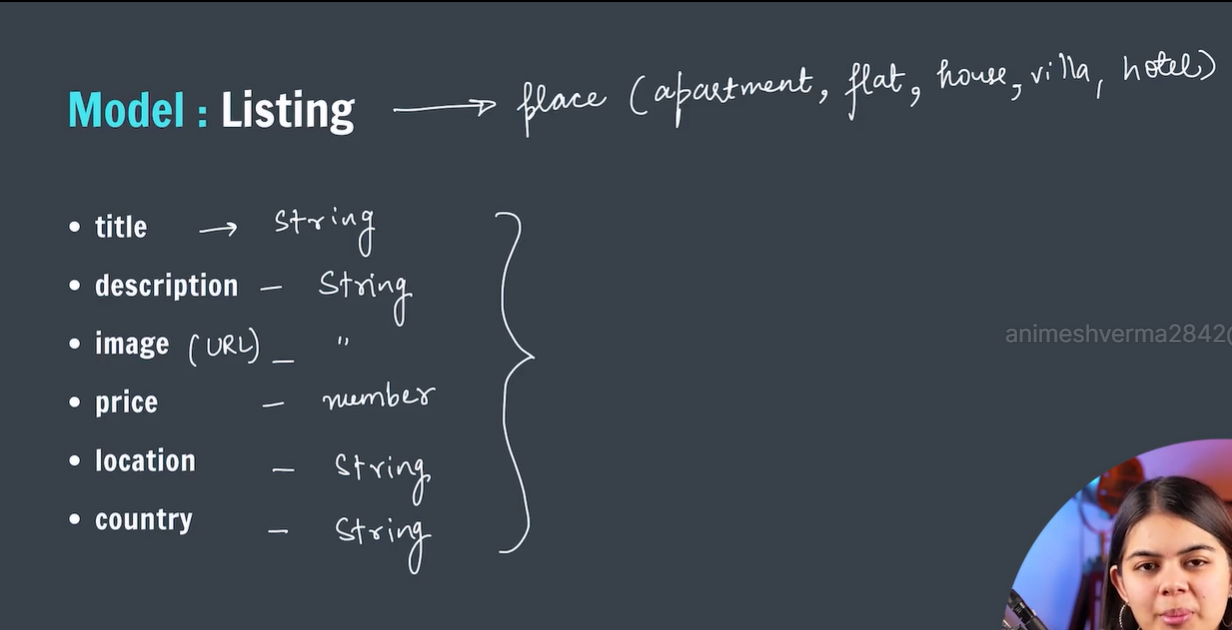 Model : Listing → place (apartment, flat, house, villa, hotel)
• title → String
• description – String
• image (URL) – "
• price – number
• location – String
• country – String
animeshverma2842